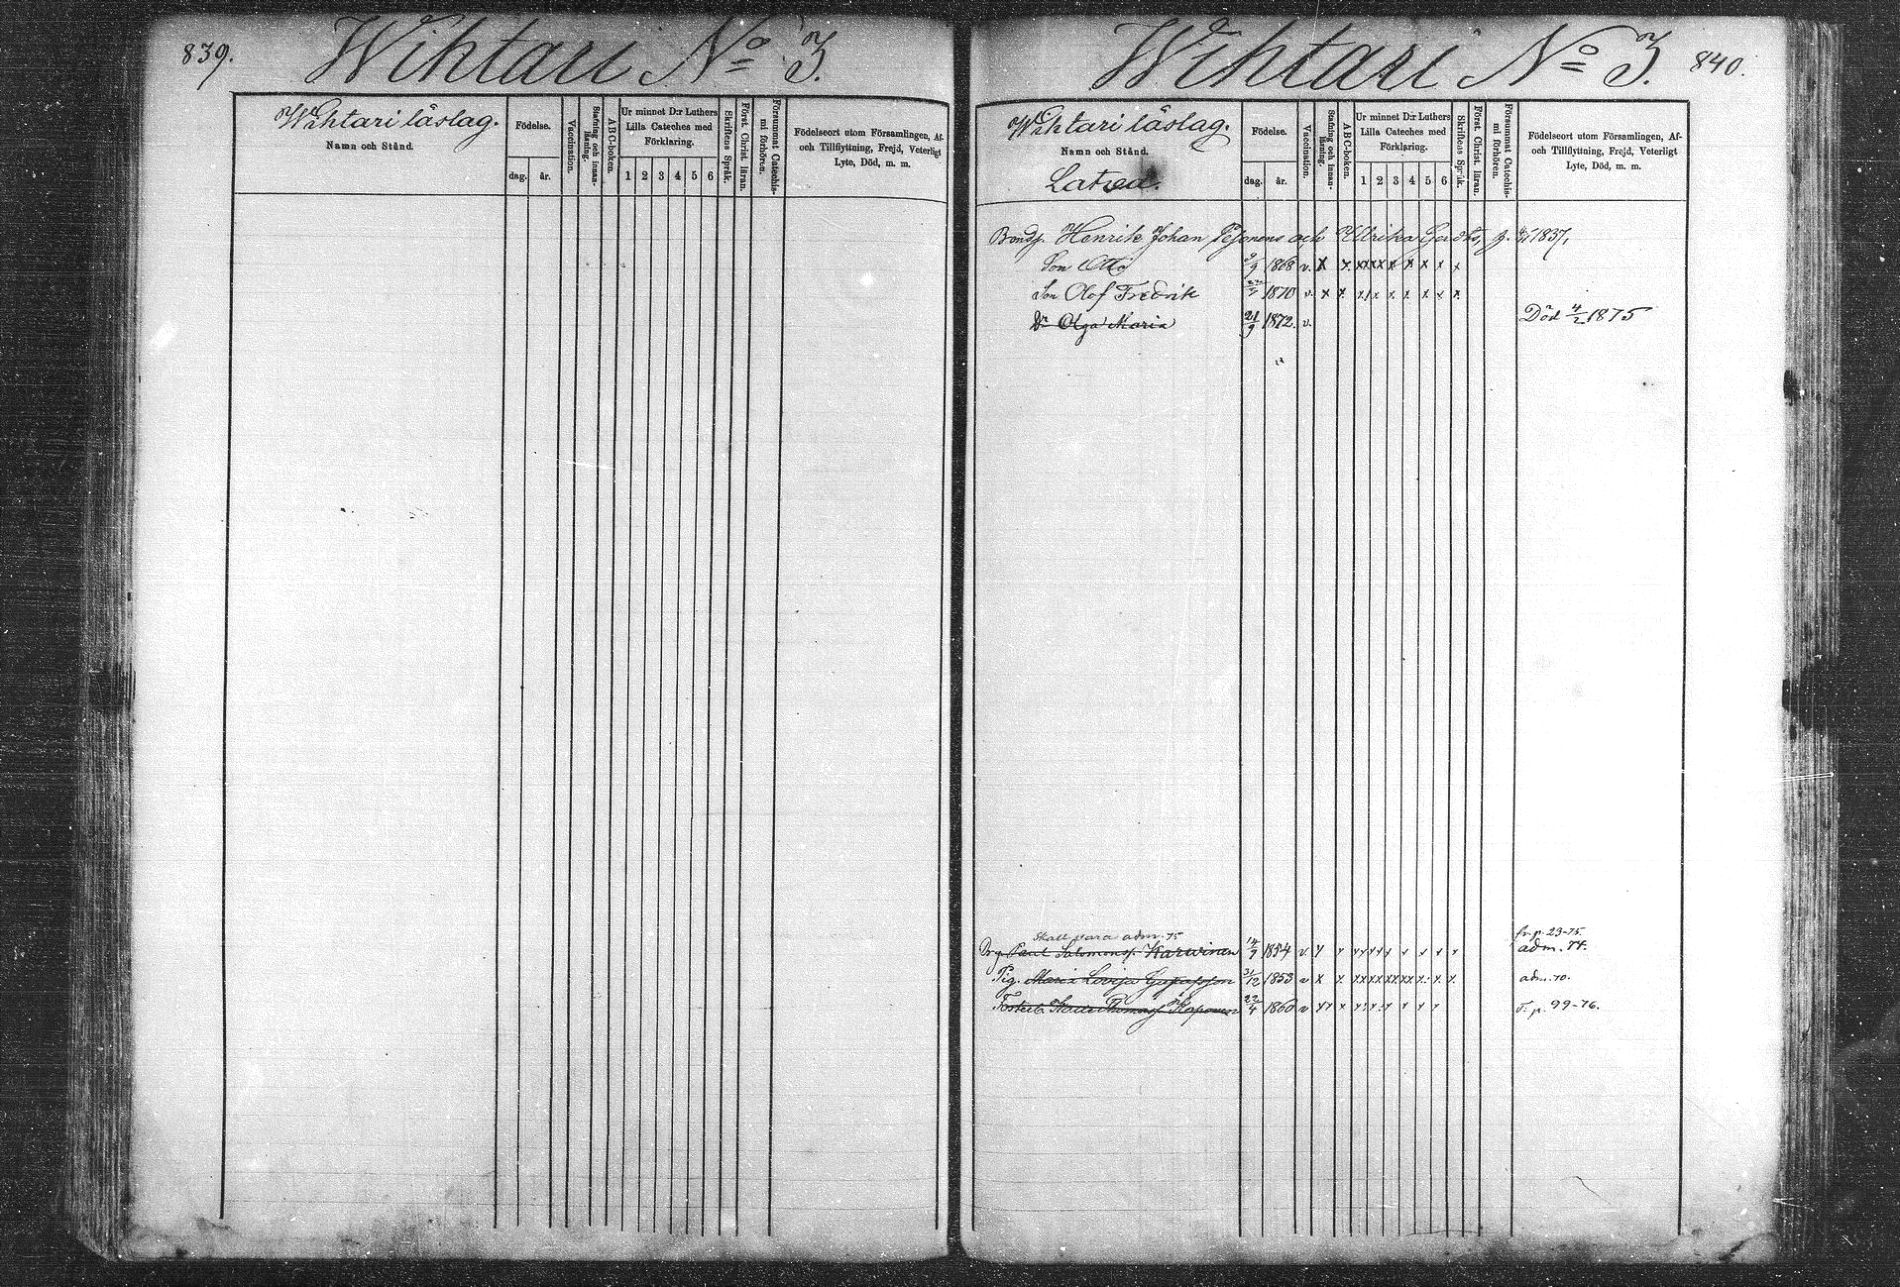 839.
Wihtari No 3.
Wihtari läslag.
Namn och Stånd.
Födelse.
dag. år.
Vaccination.
Stafning och innan-läsning.
ABC-boken.
Ur minnet D:r Luthers
Lilla Cateches med
Förklaring.
1 2 3 4 5 6
Skriftens Språk.
Först. Christ. läran.
Försummat Catechis-mi förhören.
Födelseort utom Församlingen, Af-
och Tillflyttning, Frejd, Veterligt
Lyte, Död, m. m.
Wihtari No 3.
840.
Wihtari läslag.
Namn och Stånd.
Födelse.
dag. år.
Vaccination.
Stafning och innan-läsning.
ABC-boken.
Ur minnet D:r Luthers
Lilla Cateches med
Förklaring.
1 2 3 4 5 6
Skriftens Språk.
Först. Christ. läran.
Försummat Catechis-mi förhören.
Födelseort utom Församlingen, Af-
och Tillflyttning, Frejd, Veterligt
Lyte, Död, m. m.
Henrik Johan och Ulrika 1837,
Son Otto 1868 v. x x x x x x x x x x
Son Olof Fredrik 1870 v. x x x x x x x x x
Dr Olga Maria 21/9 1872. v. Död 4/2 1875
Skall vara adm. 75 fr. p. 23-75.
Paul Salomonsp. Karwinen 14/9 1854 v. adm. 74.
Pig. Maria Lovisa 31/12 1853 v adm. 70.
22/4 1860 v p. 99-76.